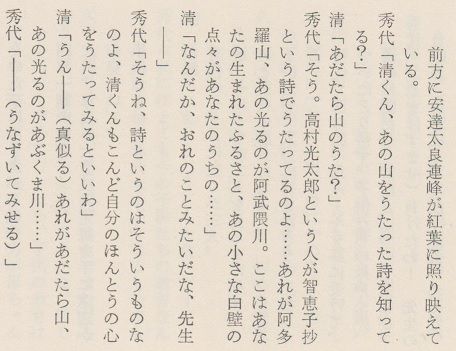 前方に安達太良連峰が紅葉に照り映えて
いる。
秀代「清くん、あの山をうたった詩を知って
る？」
清「あだたら山のうた？」
秀代「そう。高村光太郎という人が智恵子抄
という詩でうたってるのよ……あれが阿多
羅山、あの光るのが阿武隈川。ここはあな
たの生まれたふるさと、あの小さな白壁の
点々があなたのうちの……」
清「なんだか、おれのことみたいだな、先生
――」
秀代「そうね、詩というのはそういうものな
のよ、清くんもこんど自分のほんとうの心
をうたってみるといいわ」
清「うん――（真似る）あれがあだたら山、
あの光るのがあぶくま川……」
秀代「――（うなずいてみせる）」